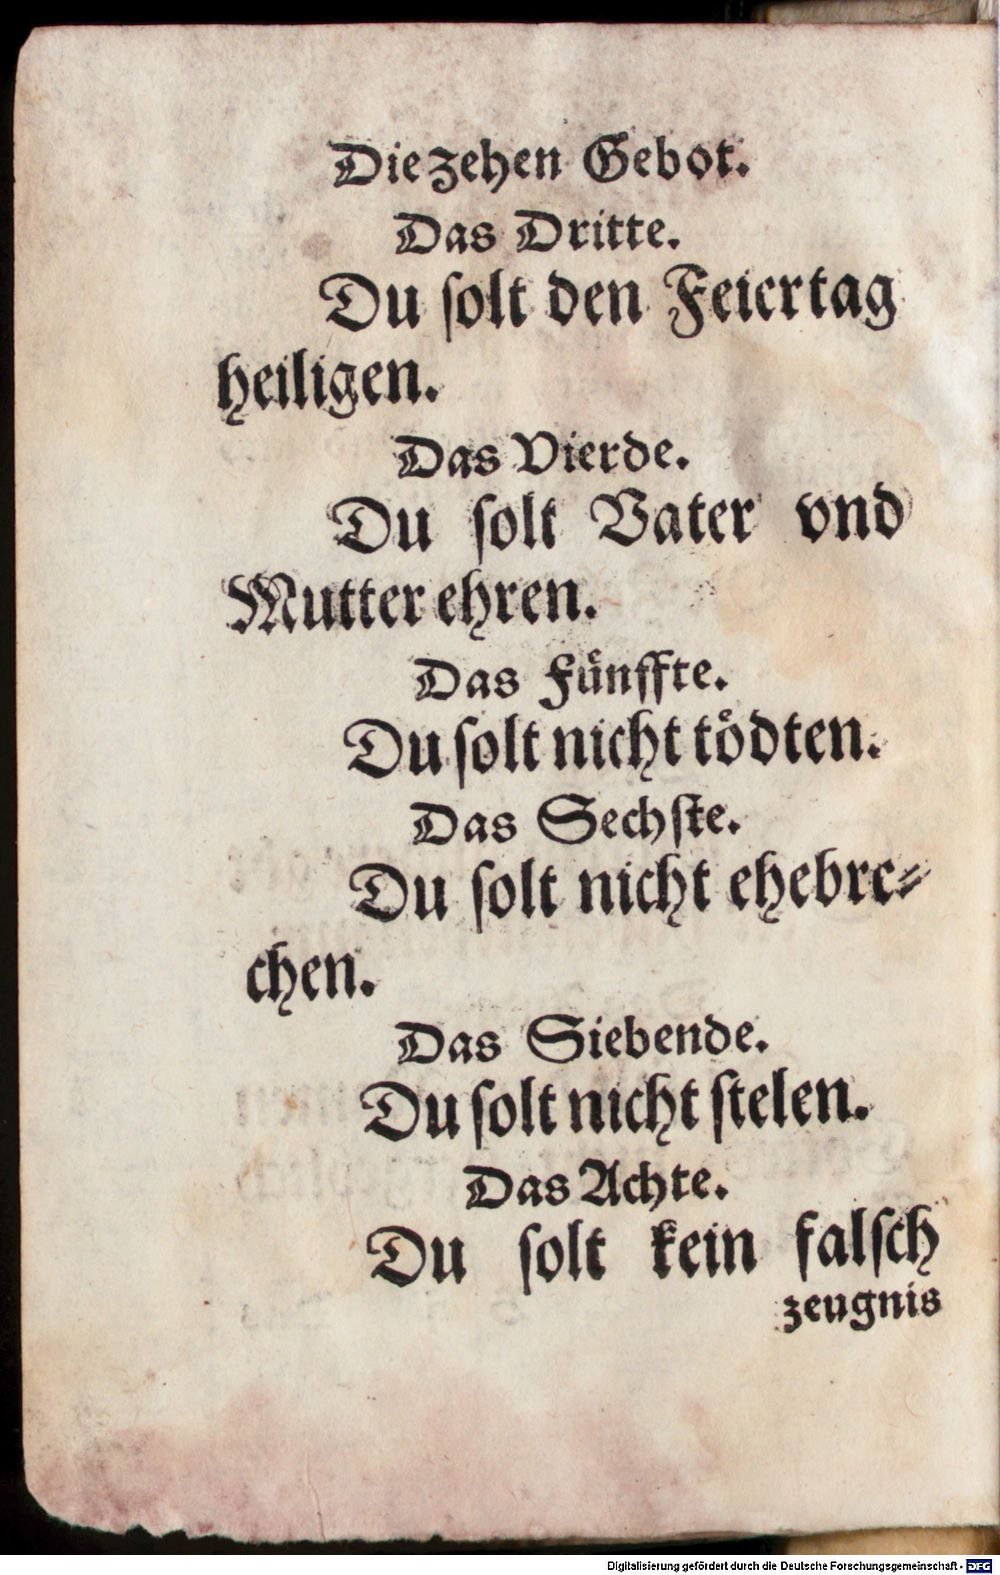 Die zehen Gebot.
Das Dritte.
Du ſolt den Feiertag
heiligen.
Das Vierde.
Du ſolt Vater vnd
Mutter ehren.
Das Fuͤnffte.
Du ſolt nicht toͤdten.
Das Sechſte.
Du ſolt nicht ehebre⸗
chen.
Das Siebende.
Du ſolt nicht ſtelen.
Das Achte.
Du ſolt kein falſch
zeugnis
Digitalisierung gefördert durch die Deutsche Forschungsgemeinschaft - DFG